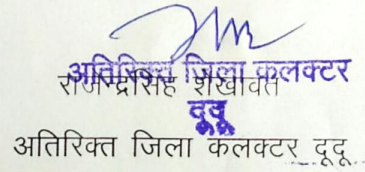 अतिरिक्त जिला कलक्टर
राजेन्द्रसिंह शेखावत
दूदू
अतिरिक्त जिला कलक्टर दूदू